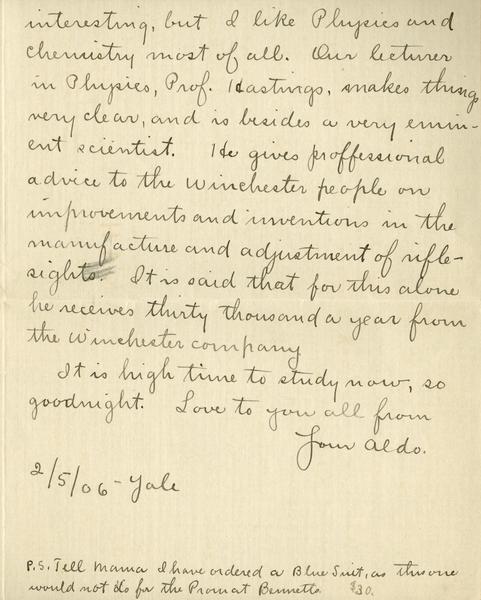 interesting, but I like Physics and
chemistry most of all. Our lecturer
in Physics, Prof. Hastings, makes things
very clear, and is besides a very emin-
ent scientist. He gives proffessional
advice to the Winchester people on
improvements and inventions in the
manufacture and adjustment of rifle-
sights. It is said that for this alone
he receives thirty thousand a year from
the Winchester company
It is high time to study now, so
goodnight. Love to you all from
Your Aldo.
2/5/06 - Yale
P.S. Tell Mama I have ordered a Blue Suit, as this one
would not do for the Prom at Bennetts $30.